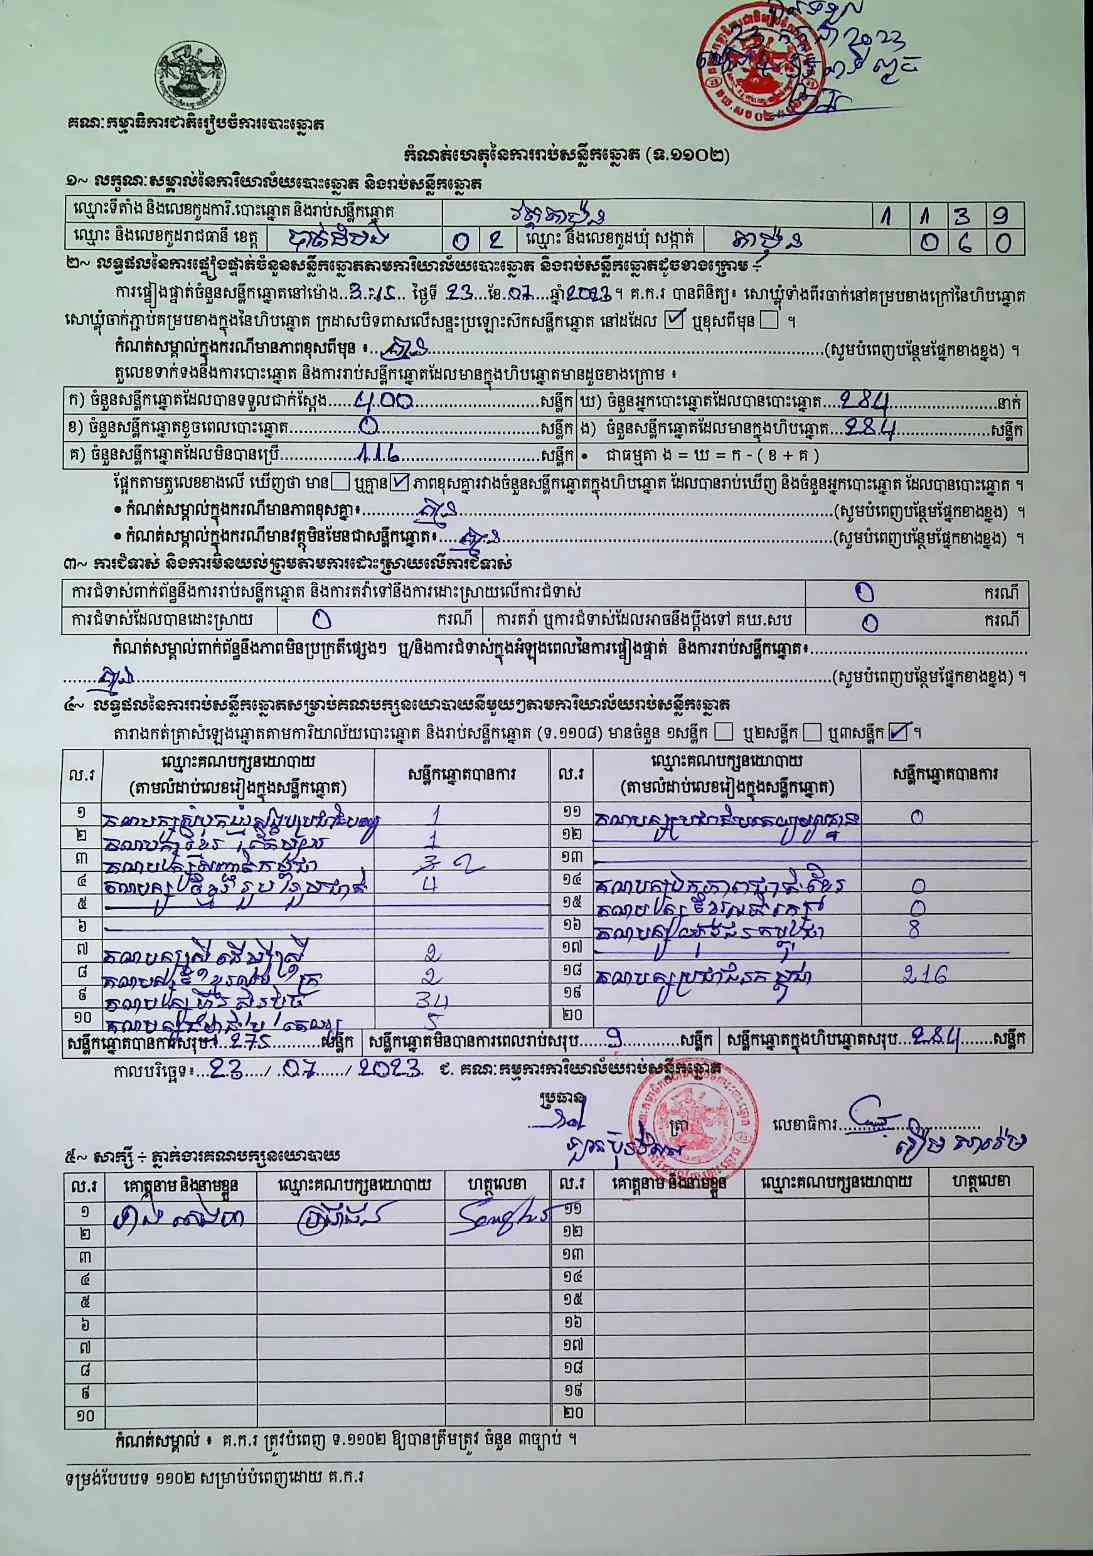 គណៈកម្មាធិការជាតិរៀបចំការបោះឆ្នោត
កំណត់ហេតុនៃការរាប់សន្លឹកឆ្នោត (ទ.១១០២)
១~ លក្ខណៈសម្គាល់នៃការិយាល័យបោះឆ្នោត និងរាប់សន្លឹកឆ្នោត
ឈ្មោះទីតាំង និងលេខកូដការិ.បោះឆ្នោត និងរាប់សន្លឹកឆ្នោត 1 1 3 9
ឈ្មោះ និងលេខកូដរាជធានី ខេត្ត បាត់ដំបង 0 2 ឈ្មោះ និងលេខកូដឃុំ សង្កាត់ 0 6 0
២~ លទ្ធផលនៃការផ្ទៀងផ្ទាត់ចំនួនសន្លឹកឆ្នោតតាមការិយាល័យបោះឆ្នោត និងរាប់សន្លឹកឆ្នោតដូចខាងក្រោម ÷
ការផ្ទៀងផ្ទាត់ចំនួនសន្លឹកឆ្នោតនៅម៉ោង..3:15.. ថ្ងៃទី 23 ខែ 07 ឆ្នាំ 2023 ។ គ.ក.រ បានពិនិត្យ៖ សោឃ្លុំទាំងពីរចាក់នៅគម្របខាងក្រៅនៃហិបឆ្នោត
សោឃ្លុំចាក់ភ្ជាប់គម្របខាងក្នុងនៃហិបឆ្នោត ក្រដាសបិទពាសលើសន្ទះប្រឡោះស៊កសន្លឹកឆ្នោត នៅដដែល ☑ ឬខុសពីមុន ☐ ។
កំណត់សម្គាល់ក្នុងករណីមានភាពខុសពីមុន ៖ គ្មាន (សូមបំពេញបន្ថែមផ្នែកខាងខ្នង) ។
តួលេខទាក់ទងនឹងការបោះឆ្នោត និងការរាប់សន្លឹកឆ្នោតដែលមានក្នុងហិបឆ្នោតមានដូចខាងក្រោម ៖
ក) ចំនួនសន្លឹកឆ្នោតដែលបានទទួលជាក់ស្តែង 400 សន្លឹក ឃ) ចំនួនអ្នកបោះឆ្នោតដែលបានបោះឆ្នោត 284 នាក់
ខ) ចំនួនសន្លឹកឆ្នោតខូចពេលបោះឆ្នោត 0 សន្លឹក ង) ចំនួនសន្លឹកឆ្នោតដែលមានក្នុងហិបឆ្នោត 284 សន្លឹក
គ) ចំនួនសន្លឹកឆ្នោតដែលមិនបានប្រើ 116 សន្លឹក • ជាធម្មតា ង = ឃ = ក - ( ខ + គ )
ផ្អែកតាមតួលេខខាងលើ ឃើញថា មាន ☐ ឬគ្មាន ☑ ភាពខុសគ្នារវាងចំនួនសន្លឹកឆ្នោតក្នុងហិបឆ្នោត ដែលបានរាប់ឃើញ និងចំនួនអ្នកបោះឆ្នោត ដែលបានបោះឆ្នោត ។
• កំណត់សម្គាល់ក្នុងករណីមានភាពខុសគ្នា៖ គ្មាន (សូមបំពេញបន្ថែមផ្នែកខាងខ្នង) ។
• កំណត់សម្គាល់ក្នុងករណីមានវត្ថុមិនមែនជាសន្លឹកឆ្នោត៖ គ្មាន (សូមបំពេញបន្ថែមផ្នែកខាងខ្នង) ។
៣~ ការជំទាស់ និងការមិនយល់ព្រមតាមការដោះស្រាយលើការជំទាស់
ការជំទាស់ពាក់ព័ន្ធនឹងការរាប់សន្លឹកឆ្នោត និងការតវ៉ាទៅនឹងការដោះស្រាយលើការជំទាស់ 0 ករណី
ការជំទាស់ដែលបានដោះស្រាយ 0 ករណី ការតវ៉ា ឬការជំទាស់ដែលអាចនឹងប្តឹងទៅ គឃ.សប 0 ករណី
កំណត់សម្គាល់ពាក់ព័ន្ធនឹងភាពមិនប្រក្រតីផ្សេងៗ ឬ/និងការជំទាស់ក្នុងអំឡុងពេលនៃការផ្ទៀងផ្ទាត់ និងការរាប់សន្លឹកឆ្នោត៖
គ្មាន (សូមបំពេញបន្ថែមផ្នែកខាងខ្នង) ។
៤~ លទ្ធផលនៃការរាប់សន្លឹកឆ្នោតសម្រាប់គណបក្សនយោបាយនីមួយៗតាមការិយាល័យរាប់សន្លឹកឆ្នោត
តារាងកត់ត្រាសំឡេងឆ្នោតតាមការិយាល័យបោះឆ្នោត និងរាប់សន្លឹកឆ្នោត (ទ.១១០៨) មានចំនួន ១សន្លឹក ☐ ឬ២សន្លឹក ☐ ឬ៣សន្លឹក ☑ ។
ល.រ ឈ្មោះគណបក្សនយោបាយ (តាមលំដាប់លេខរៀងក្នុងសន្លឹកឆ្នោត) សន្លឹកឆ្នោតបានការ ល.រ ឈ្មោះគណបក្សនយោបាយ (តាមលំដាប់លេខរៀងក្នុងសន្លឹកឆ្នោត) សន្លឹកឆ្នោតបានការ
១ 1 ១១ 0
២ 1 ១២
៣ 2 ១៣
៤ គណបក្សខ្មែររួបរួមជាតិ 4 ១៤ គណបក្សឯកភាពជាតិខ្មែរ 0
៥ ១៥ 0
៦ ១៦ គណបក្សយុវជនកម្ពុជា 8
៧ គណបក្សស្ត្រីដើម្បីស្ត្រី 2 ១៧
៨ 2 ១៨ គណបក្សប្រជាជនកម្ពុជា 216
៩ 34 ១៩
១០ 5 ២០
សន្លឹកឆ្នោតបានការសរុប 275 សន្លឹក សន្លឹកឆ្នោតមិនបានការពេលរាប់សរុប 9 សន្លឹក សន្លឹកឆ្នោតក្នុងហិបឆ្នោតសរុប 284 សន្លឹក
កាលបរិច្ឆេទ៖ 23 / 07 / 2023 ជ. គណៈកម្មការការិយាល័យរាប់សន្លឹកឆ្នោត
ប្រធាន
ត្រា លេខាធិការ
៥~ សាក្សី ÷ ភ្នាក់ងារគណបក្សនយោបាយ
ល.រ គោត្តនាម និងនាមខ្លួន ឈ្មោះគណបក្សនយោបាយ ហត្ថលេខា ល.រ គោត្តនាម និងនាមខ្លួន ឈ្មោះគណបក្សនយោបាយ ហត្ថលេខា
១ ប្រជាជន ១១
២ ១២
៣ ១៣
៤ ១៤
៥ ១៥
៦ ១៦
៧ ១៧
៨ ១៨
៩ ១៩
១០ ២០
កំណត់សម្គាល់ ៖ គ.ក.រ ត្រូវបំពេញ ទ.១១០២ ឱ្យបានត្រឹមត្រូវ ចំនួន ៣ច្បាប់ ។
ទម្រង់បែបបទ ១១០២ សម្រាប់បំពេញដោយ គ.ក.រ